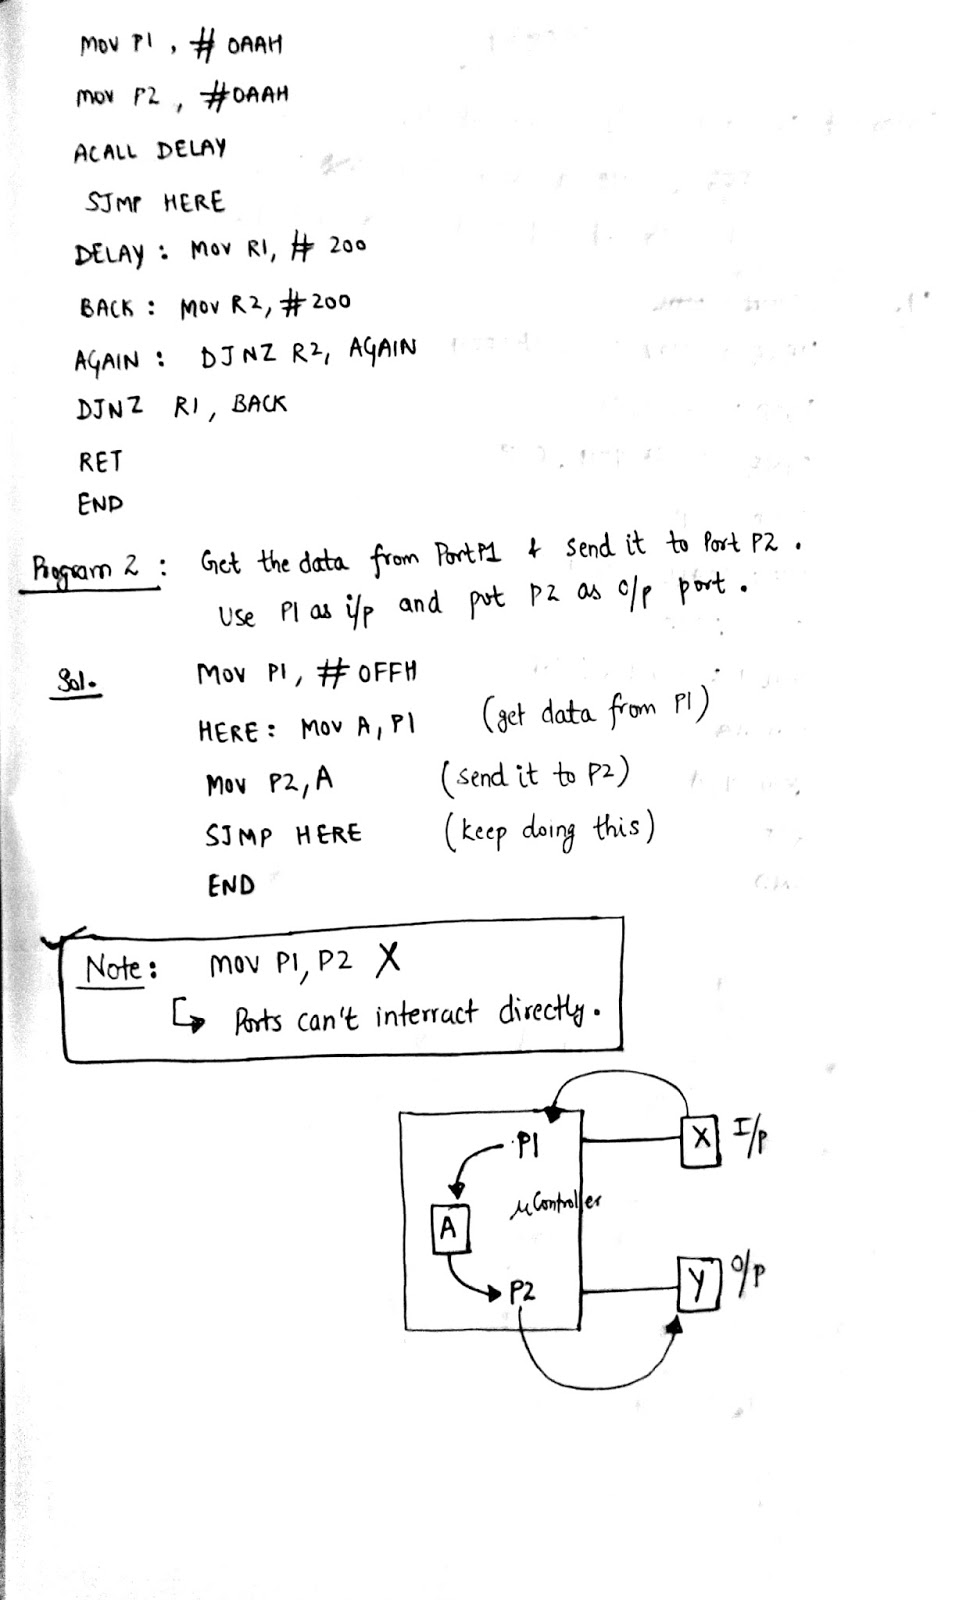 MOV P1, # 0AAH
MOV P2, #0AAH
ACALL DELAY
SJMP HERE
DELAY : MOV R1, # 200
BACK : MOV R2, #200
AGAIN : DJNZ R2, AGAIN
DJNZ R1, BACK
RET
END
Program 2 : Get the data from Port P1 & send it to Port P2.
Use P1 as i/p and put P2 as o/p port.
Sol. MOV P1, # 0FFH
HERE: MOV A, P1 (get data from P1)
MOV P2, A (send it to P2)
SJMP HERE (keep doing this)
END
Note: MOV P1, P2 X
↳ Ports can't interract directly.
P1 X I/P
μController
A
P2 Y O/P